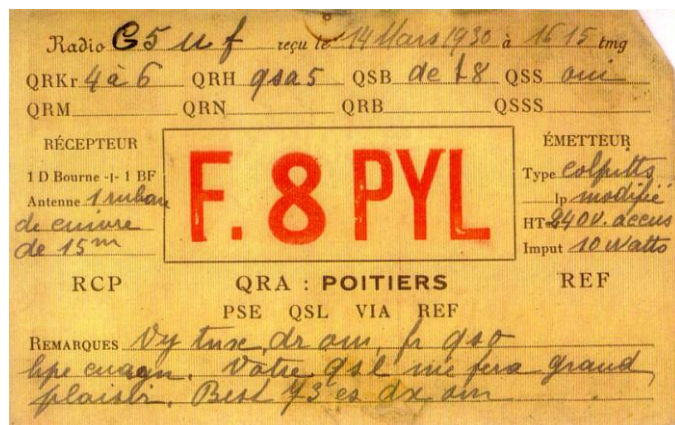 Radio G5uf reçu le 14 Mars 1930 à 1615 tmg
QRKr 4 à 6 QRH qsa5 QSB de t8 QSS oui
QRM QRN QRB QSSS
RÉCEPTEUR
1 D Bourne -I- 1 BF
Antenne 1 ruban
de cuivre
de 15m
F. 8 PYL
ÉMETTEUR
Type colpitts
Ip modifié
HT 240V. accus
Imput 10 Watts
RCP QRA : POITIERS REF
PSE QSL VIA REF
REMARQUES Vy tnx, dr om, fr qso
hpe cuagn. Votre qsl me fera grand
plaisir. Best 73 es dx om